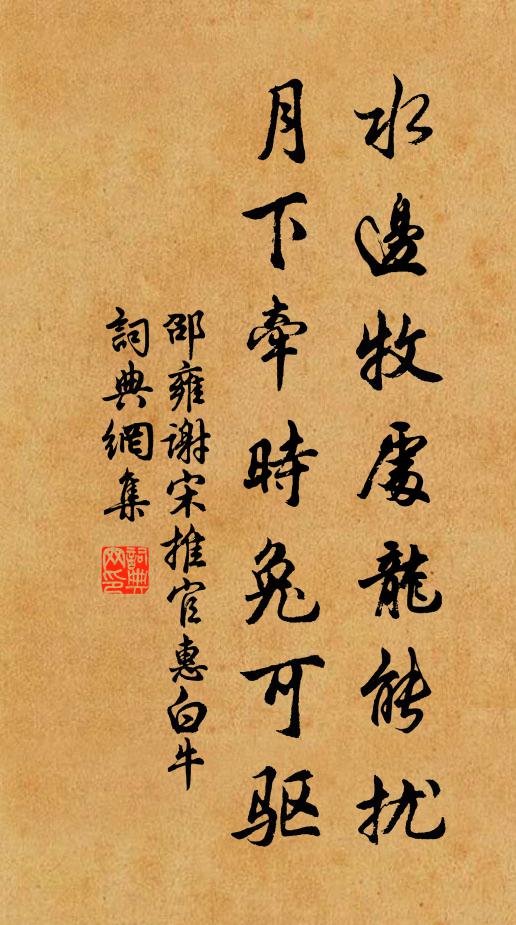 水邊牧處龍能扰
月下牽時兔可驱
邵雍谢宋推官惠白牛
詞典網集
詞典
网印